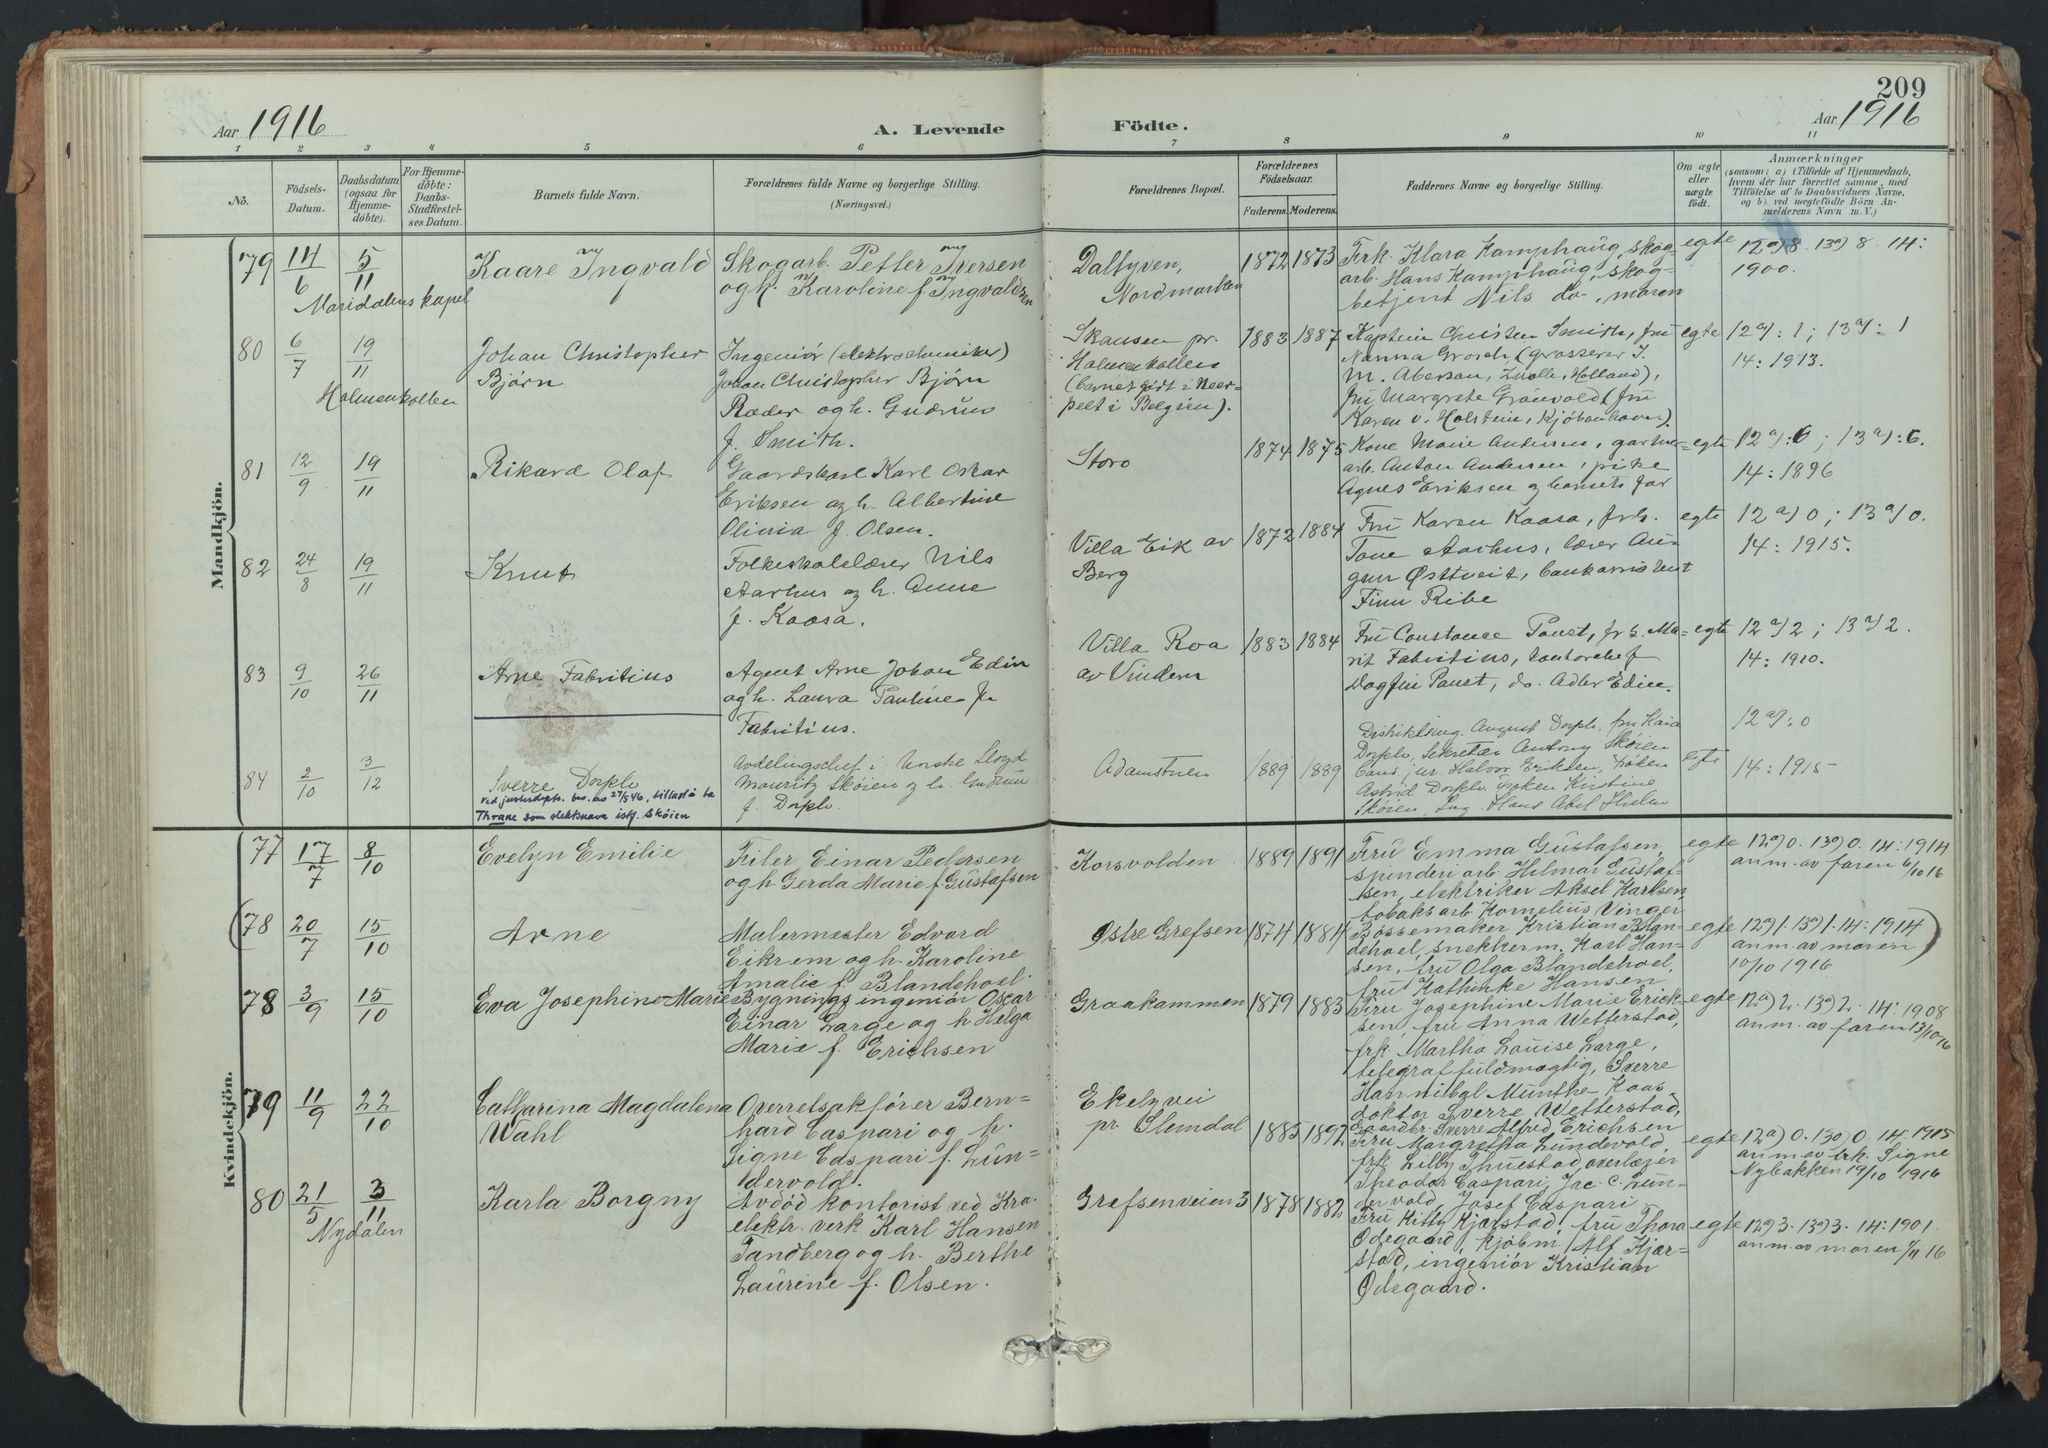 209
Aar 1916
A. Levende Födte.
Aar 1916
1 2 3 4 5 6 7 8 9 10 11
No.
Födsels-Datum.
Daabsdatum (ogsaa for Hjemmedöbte).
For Hjemmedöbte: Daabs-Stadfæstelses Datum.
Barnets fulde Navn.
Forældrenes fulde Navne og borgerlige Stilling.
(Næringsvei.)
Forældrenes Bopæl.
Forældrenes Födselsaar.
Faderens. Moderens.
Faddernes Navne og borgerlige Stilling.
Om ægte eller uægte födt.
Anmærkninger
(saasom: a) i Tilfælde af Hjemmedaab,
hvem dér har forrettet samme, med
Tilföielse af to Daabsvidners Navne.
og b) ved uægtefödte Börn An-
melderens Navn m. V.)
Mandkjön.
79 14/6 5/11
Maridalens kapel
Kaare Ingvald
Skogarb. Petter Iversen
og h. Karoline f. Ingvaldsen
Dalfyven,
Nordmarken
1872 1873
Frk. Klara Kamphaug, skog-
arb. Hans Kamphaug, skog-
betjent Nils do., moren
egte
12a) 8. 13a) 8. 14:
1900.
80 6/7 19/11
Holmenkollen
Johan Christopher
Bjørn
Ingeniør (elektrokemiker)
Johan Christopher Bjørn
Ræder og h. Gudrun
f. Smith.
Skansen pr.
Holmenkollen
(barnet født i Neer-
pelt i Belgien).
1883 1887
Kaptein Christen Smith, fru
Nanna Grosch, (grosserer J.
M. Aberson, Zwolle, Holland),
fru Margrete Grønvold (fru
Karen v. Holstein, Kjøbenhavn).
egte
12a): 1; 13a): 1
14: 1913.
81 12/9 19/11
Rikard Olaf
Gaardskarl Karl Oskar
Eriksen og h. Albertine
Olivia f. Olsen.
Storo
1874 1875
Kone Marie Andersen, gartner-
arb. Anton Andersen, pike
Agnes Eriksen og barnets far
egte
12a): 6; 13a): 6.
14: 1896
82 24/8 19/11
Knut
Folkeskolelærer Nils
Aarhus og h. Anne
f. Kaasa.
Villa Eik av
Berg
1872 1884
Fru Karen Kaasa, frk.
Tone Aarhus, lærer Au-
gun Østtveit, bankassistent
Finn Ribe
egte
12a) 0; 13a) 0.
14: 1915.
83 9/10 26/11
Arne Fabritius
Agent Arne Johan Edin
og h. Laura Pauline f.
Fabritius.
Villa Roa
av Vindern
1883 1884
Fru Constance Paust, frk. Ma-
rit Fabritius, kontorchef
Dagfin Paust, do. Adler Edin.
egte
12a) 2; 13a) 2.
14: 1910.
84 2/10 3/12
Sverre Dorph
ved justisdepts. bev. av 27/5 46, tillatt å ta
Thrane som slektsnavn istf. Skøien
Avdelingschef i Norske Lloyd
Mauritz Skøien og h. Gudrun
f. Dorph.
Adamstuen
1889 1889
Distriktsing. August Dorph, fru Kaia
Dorph, sekretær Antony Skøien
Cand. jur. Halvor Eriksen, frøken
Astrid Dorph, frøken Kirstine
Skøien, Ing. Hans Abel Hielm
egte
12a): 0
14: 1915
Kvindekjön.
77 17/7 8/10
Evelyn Emilie
Filer Einar Pedersen
og h. Gerda Marie f. Gustafsen
Korsvolden
1889 1891
Fru Emma Gustafsen,
spinderiarb. Hilmar Gustaf-
sen, elektriker Aksel Karlsen,
tobaksarb. Kornelius Vinger
egte
12a) 0. 13a) 0. 14: 1914
anm. av faren 6/10 16
(78 20/7 15/10
Arne
Malermester Edvard
Eikrem og h. Karoline
Amalie f. Blandehoel
Østre Grefsen
1874 1884
Bøssemaker Kristian Blan-
dehoel, snekkerm. Karl Han-
sen, fru Olga Blandehoel,
fru Kathinke Hansen.
egte
12a) 1. 13a) 1. 14: 1914)
anm. av moren
10/10 1916
78 3/9 15/10
Eva Josephine Marie
Bygningsingeniør Oscar
Einar Large og h. Helga
Marie f. Erichsen
Graakammen
1879 1883
Fru Josephine Marie Erick-
sen, fru Anna Wetterstad,
frk. Martha Louise Large,
telegraffuldmægtig, Sverre
Hannibal Munthe-Kaas
doktor Sverre Wetterstad,
Gaardbr. Sverre Alfred Erichsen
egte
12a) 2. 13a) 2. 14: 1908
anm. av faren 13/10 16
79 11/9 22/10
Catharina Magdalena
Wahl
Overretsakfører Bern-
hard Caspari og h.
Signe Caspari f. Lun-
dervold
Ekelyvei
pr. Slemdal
1885 1892
Fru Margretha Lundevold,
frk. Lilly Thuestad, overlærer
Theodor Caspari, Jac. C. Lun-
dervold, Josef Caspari
egte
12a) 0. 13a) 0. 14: 1915
anm. av frk. Signe
Nybakken 19/10 1916
80 21/5 3/11
Nydalen
Karla Borgny
Avdød kontorist ved Kra.
elektr. verk Karl Hansen
Tandberg og h. Berthe
Laurine f. Olsen.
Grefsenveien 3
1878 1882
Fru Kitty Kjærstad, fru Thora
Ødegaard, kjøbm. Alf Kjær-
stad, ingeniør Kristian
Ødegaard.
egte
12a) 3. 13a) 3. 14: 1901.
anm. av moren 1/11 16